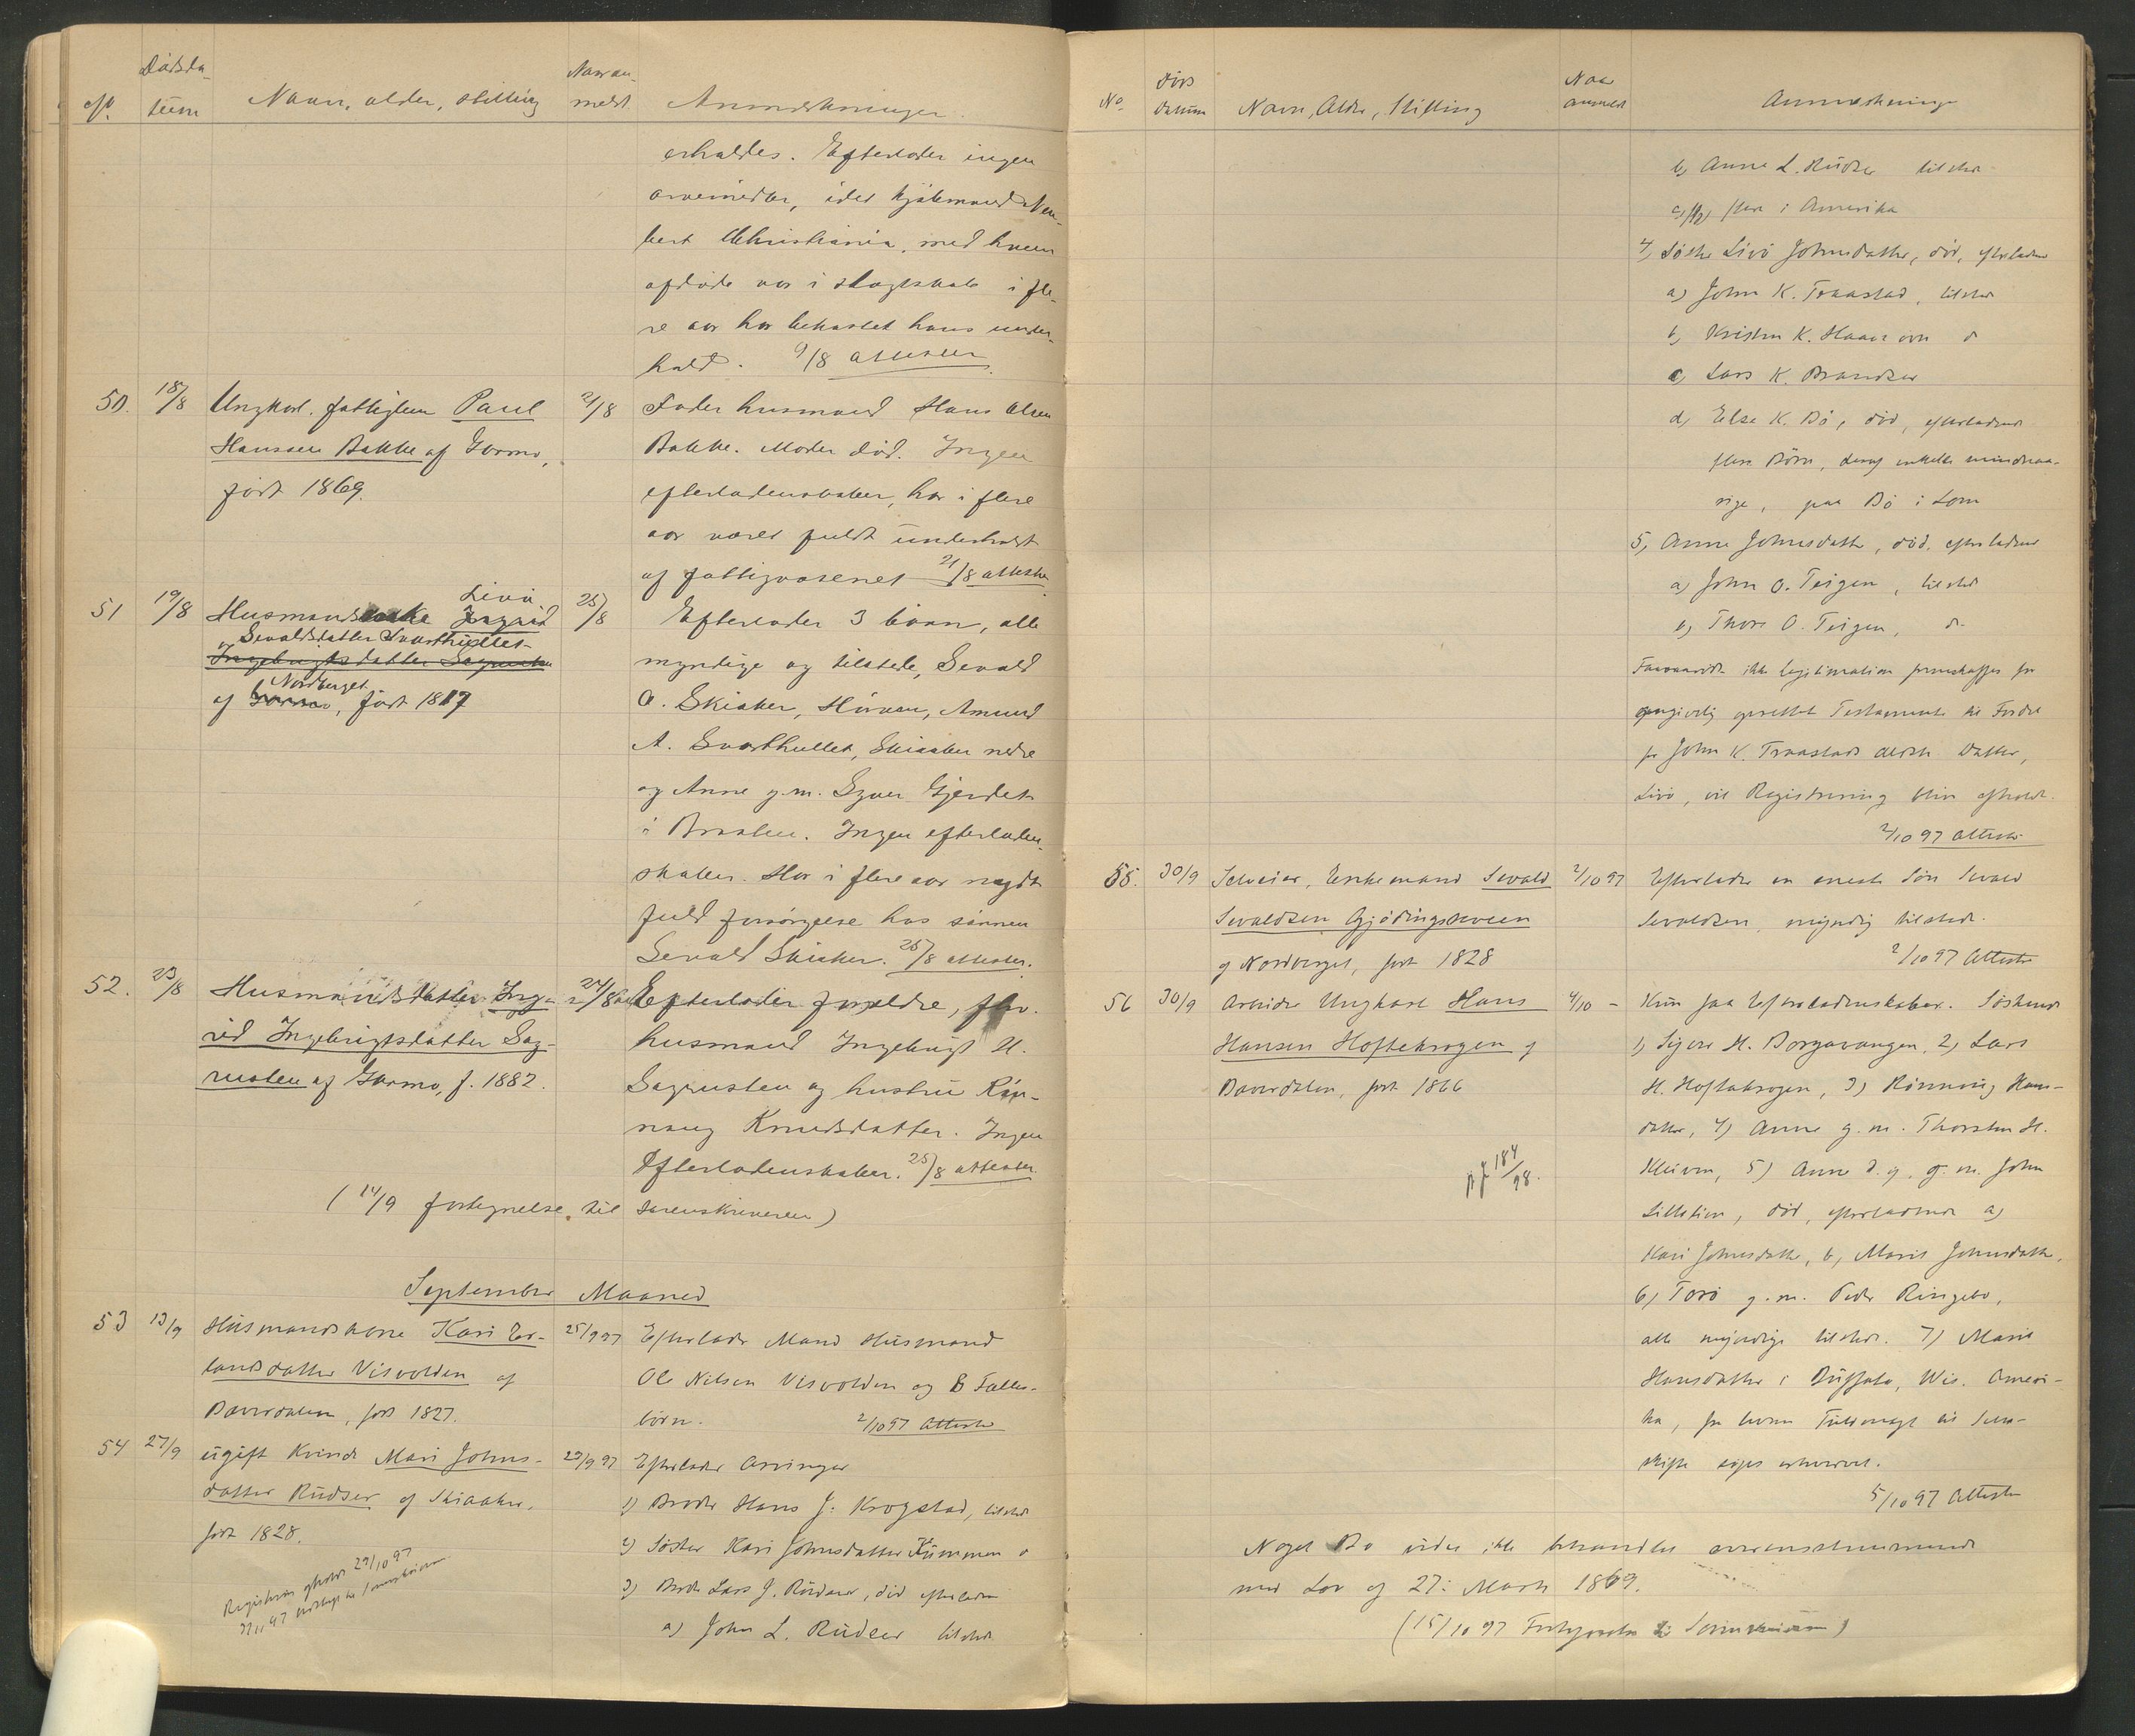 Dødsda-
No. tum Navn, alder, stilling Naar an- meldt Anmerkninger.
erholdes. Efterlader ingen
arvemidler, idet
Christiania, med hvem
afdøde var i slægtskab i fle-
re aar har bekostet hans under-
hold. 9/8 attester.
50. 18/8 Ungkarl. fattiglem Paul 21/8 Fader husmand Hans Olsen
Hanssen Bakke af Garmo, Bakke. Moder død. Ingen
født 1869. efterladenskaber, har i flere
aar været fuldt underholdt
af fattigvæsenet 21/8 attester.
Livø
51 19/8 Husmandsenke Ingrid 25/8 Efterlader 3 børn, alle
Sevaldsdatter Svarthullet
Ingebrigtsdatter Sagrusten myndige og tilstede, Sevald
Nordberget
af Garmo, født 1817 O. Skiaker, Amund
A. Svarthullet, Skiaker nedre
og Anne g.m. Syver Gjerdet
i Braaten. Ingen efterladen-
skaber. Har i flere aar nydt
fuld forsørgelse hos sønnen
Sevald Skiaker. 25/8 attester.
52. 23/8 Husmandsdatter Ing- 24/8 Efterlader forældre, fhv.
rid Ingebrigtsdatter Sag- husmand Ingebrigt H.
rusten af Garmo, f. 1882. Sagrusten og hustru Røn-
naug Knudsdatter. Ingen
Efterladenskaber. 25/8 attester.
(14/9 fortegnelse til sorenskriveren)
September Maaned
53 13/9 Husmandskone Kari Er- 25/9 97 Efterlader Mand Husmand
landsdatter Visvolden af Ole Nilsen Visvolden og 8 Fælles-
Bæverdalen, født 1827. børn. 2/10 97 Attester
54 27/9 ugift Kvinde Mari Johns- 29/9 97 Efterlader Arvinger
datter Rudser af Skiaaker, 1) Broder Hans J. Krogstad, tilstede
født 1828. 2) Søster Kari Johnsdatter Kummen d
Registrering afholdt 29/10 97 3) Broder Lars J. Rudser, død efterladende
a) John L. Rudser tilstede
No. Døds Datum Navn, Alder, Stilling Naar anmeldt Anmerkninger
b) Anne L. Rudser tilstede
c) flere i Amerika
4) Søster Livø Johnsdatter, død, efterladende
a) John K. Traastad, tilstede
b) Kristen K. d
c) Lars K. Brandser
d) Else K. Bø, død, efterladende
flere Børn, deraf enkelte mindreaa-
rige, paa Bø i Lom
5) Anne Johnsdatter, død, efterladende
a) John O. Teigen, tilstede
b) Thore O. Teigen, d
Forsaavidt ikke Legitimation fremskaffes for
angivelig oprettet Testamente til Fordel
for John K. Traastads ældste Datter,
Livø, vil Registrering blive afholdt.
2/10 97 Attester
55. 30/9 Selveier, Enkemand Sevald 2/10 97 Efterlader en eneste Søn Sevald
Sevaldsen Gjødingskveen Sevaldsen, myndig tilstede.
af Nordberget, født 1828 2/10 97 Attester
56 30/9 Arbeider Ungkarl Hans 4/10 - Kun faa Efterladenskaber. Søskende
Hansen Hoftekrogen af 1) Sigvor H. Borgavangen, 2) Lars
Bæverdalen, født 1866 H. Hoftekrogen, 3) Rønnaug Hans-
datter, 4) Anne g.m. Thorsten H.
Kleiven, 5) Anne d.y. g.m. John
184/98. Lillelien, død, efterladende a)
Kari Johnsdatter, b) Marit Johnsdatter,
6) Torø g.m. Peder Ringebo,
alle myndige tilstede. 7) Marit
Hansdatter i Buffalo, Wis. Ameri-
ka, for hvem Fuldmagt til Selv-
skifte søges erhvervet.
5/10 97 Attester
Noget Bo vides ikke behandlet overensstemmende
med Lov af 27: Marts 1869.
(15/10 97 Fortegnelse til Sorenskriveren)